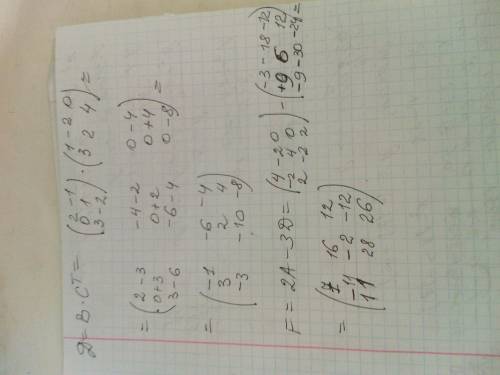 D = B · Cᵀ = (2 -1 / 0 1 / 3 -2) · (1 -2 0 / 3 2 4) =
= (2-3 -4-2 0-4 / 0+3 0+2 0+4 / 3-6 -6-4 0-8) =
= (-1 -6 -4 / 3 2 4 / -3 -10 -8)
F = 2A - 3D = (4 -2 0 / -2 4 0 / 2 -2 2) - (-3 -18 -12 / +9 6 12 / -9 -30 -24) =
= (7 16 12 / -11 -2 -12 / 11 28 26)